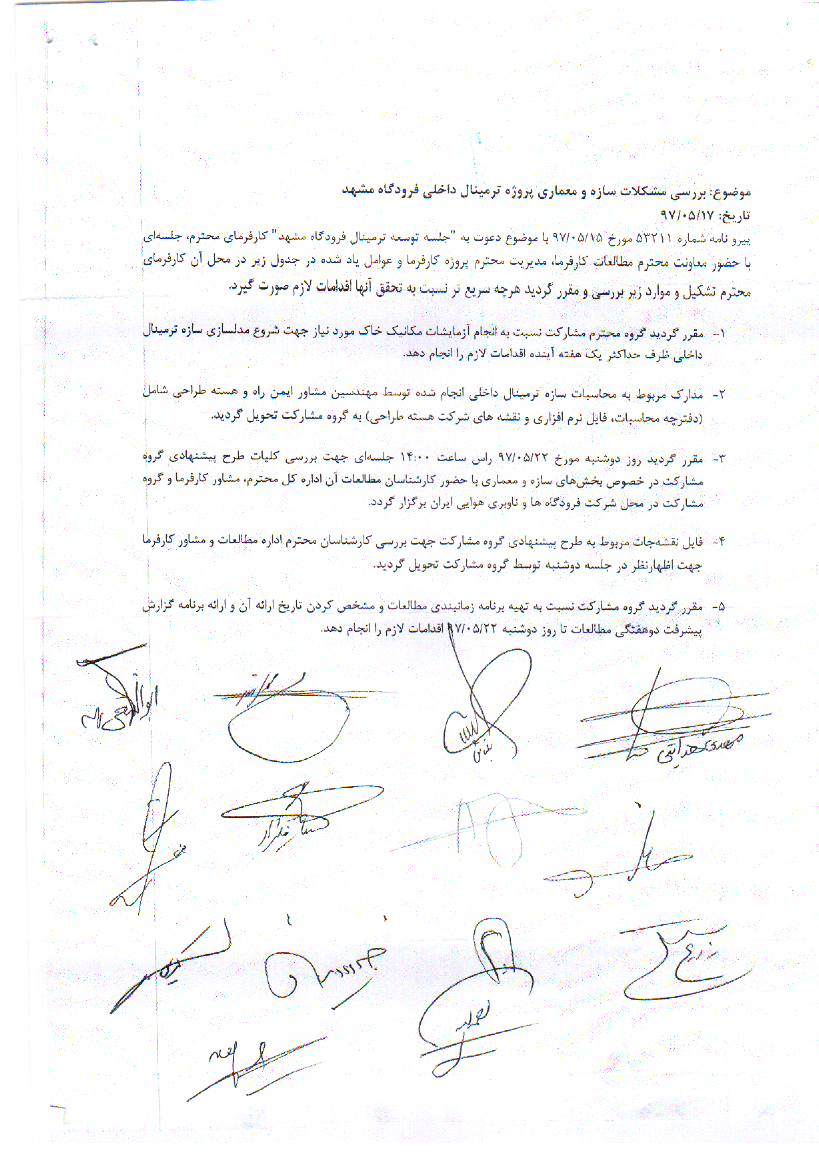 موضوع: بررسی مشکلات سازه و معماری پروژه ترمینال داخلی فرودگاه مشهد
تاریخ: ۹۷/۰۵/۱۷
پیرو نامه شماره ۵۳۲۱۱ مورخ ۹۷/۰۵/۱۵ با موضوع دعوت به "جلسه توسعه ترمینال فرودگاه مشهد" کارفرمای محترم، جلسه‌ای
با حضور معاونت محترم مطالعات کارفرما، مدیریت محترم پروژه کارفرما و عوامل یاد شده در جدول زیر در محل آن کارفرمای
محترم تشکیل و موارد زیر بررسی و مقرر گردید هرچه سریع تر نسبت به تحقق آنها اقدامات لازم صورت گیرد.
۱- مقرر گردید گروه محترم مشارکت نسبت به انجام آزمایشات مکانیک خاک مورد نیاز جهت شروع مدلسازی سازه ترمینال
داخلی ظرف حداکثر یک هفته آینده اقدامات لازم را انجام دهد.
۲- مدارک مربوط به محاسبات سازه ترمینال داخلی انجام شده توسط مهندسین مشاور ایمن راه و هسته طراحی شامل
(دفترچه محاسبات، فایل نرم افزاری و نقشه های شرکت هسته طراحی) به گروه مشارکت تحویل گردید.
۳- مقرر گردید روز دوشنبه مورخ ۹۷/۰۵/۲۲ راس ساعت ۱۴:۰۰ جلسه‌ای جهت بررسی کلیات طرح پیشنهادی گروه
مشارکت در خصوص بخش‌های سازه و معماری با حضور کارشناسان مطالعات آن اداره کل محترم، مشاور کارفرما و گروه
مشارکت در محل شرکت فرودگاه ها و ناوبری هوایی ایران برگزار گردد.
۴- فایل نقشه‌جات مربوط به طرح پیشنهادی گروه مشارکت جهت بررسی کارشناسان محترم اداره مطالعات و مشاور کارفرما
جهت اظهارنظر در جلسه دوشنبه توسط گروه مشارکت تحویل گردید.
۵- مقرر گردید گروه مشارکت نسبت به تهیه برنامه زمانبندی مطالعات و مشخص کردن تاریخ ارائه آن و ارائه برنامه گزارش
پیشرفت دوهفتگی مطالعات تا روز دوشنبه ۹۷/۰۵/۲۲ اقدامات لازم را انجام دهد.